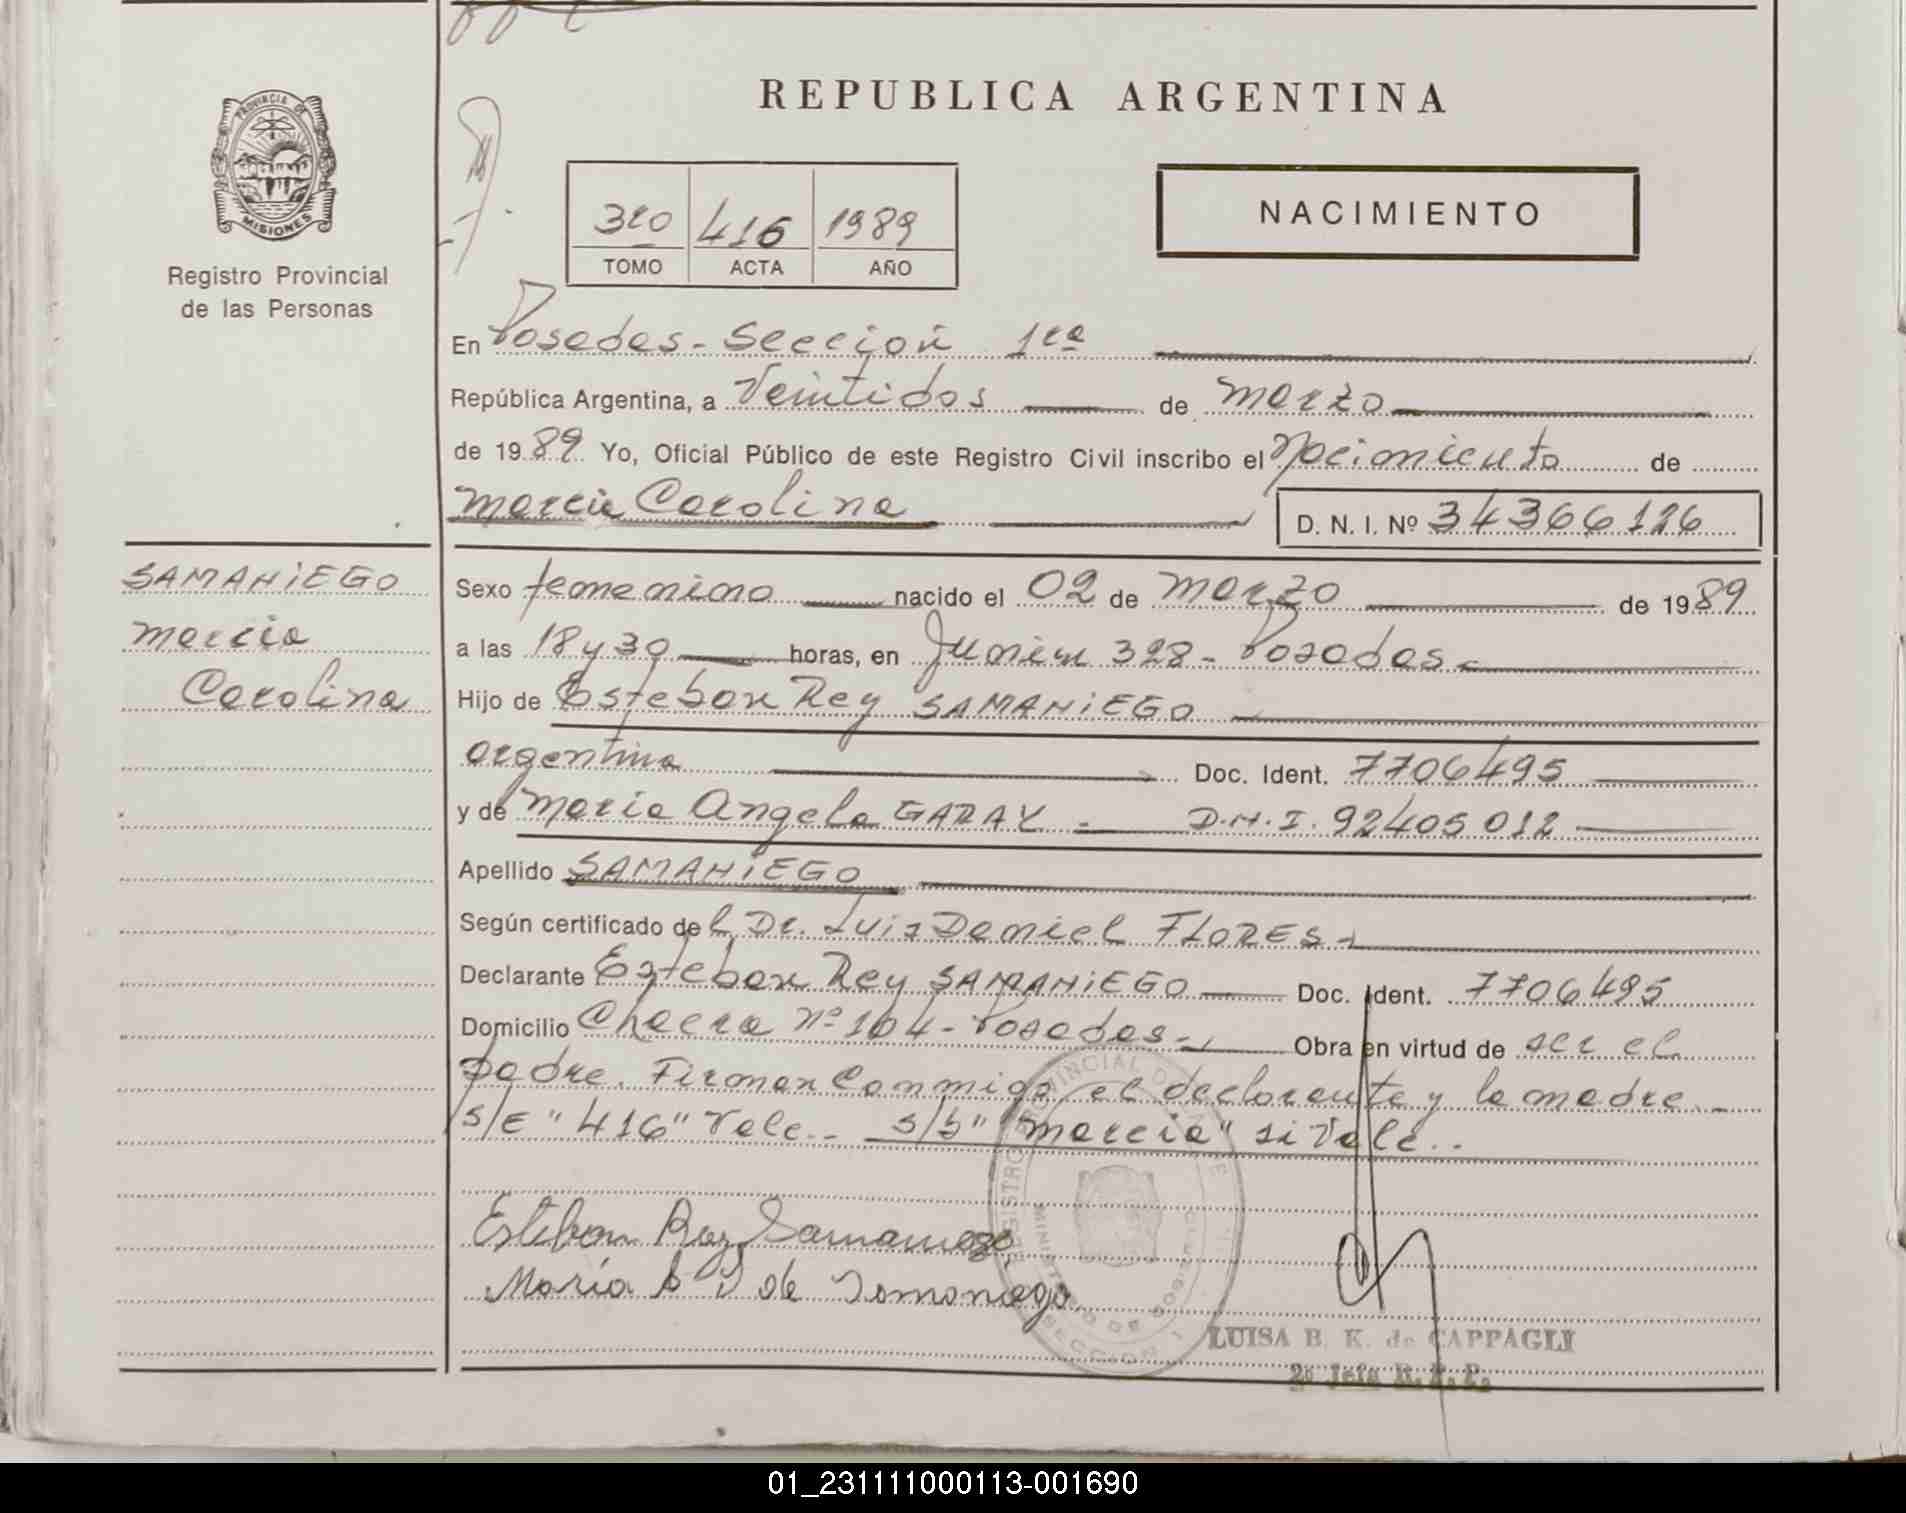 REPUBLICA ARGENTINA
PROVINCIA DE MISIONES
Registro Provincial
de las Personas
3ro 416 1989
TOMO ACTA AÑO
NACIMIENTO
En Posadas - Sección 1ra
República Argentina, a Veintidos de marzo
de 1989 Yo, Oficial Público de este Registro Civil inscribo el Nacimiento de
Marcia Carolina D. N. I. Nº 34366126
SAMANiEGO
Marcia
Carolina
Sexo femenino nacido el 02 de marzo de 1989
a las 18 y 30 horas, en Junin 328 - Posadas -
Hijo de Esteban Rey SAMANiEGO
argentina Doc. Ident. 7706495
y de Maria Angela GARAY - D.N.I. 92405012
Apellido SAMANiEGO
Según certificado del Dr. Luis Daniel FLORES -
Declarante Esteban Rey SAMANiEGO Doc. Ident. 7706495
Domicilio Chacra Nº 104 - Posadas - Obra en virtud de ser el
padre. Firman conmigo el declarante y la madre. -
S/E "416" Vale. - S/b "Marcia" si Vale. -
Esteban Rey Samaniego
María de Samaniego
LUISA B. K. de CAPPAGLI
2º Jefa R. P. P.
01_231111000113-001690